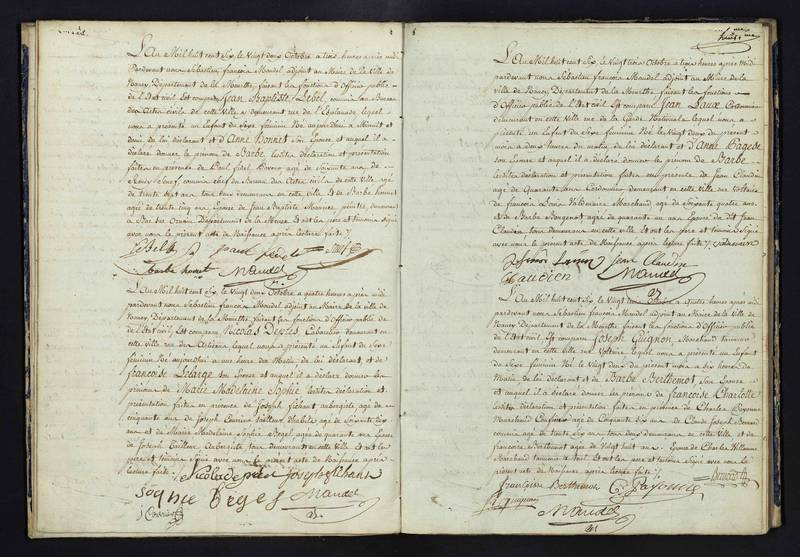 L'An Mil huit cent Six, le Vingt deux Octobre a trois heures après midi
Pardevant nous Sébastien françois Mandel adjoint au Maire de la Ville de
Nancy, Département de la Meurthe, faisant les fonctions d'Officier public
de l'Etat civil, Est comparu Jean Baptiste Lebel, commis au Bureau
des Actes civils de cette Ville y demeurant rue de l'Esplanade lequel
nous a présenté un Enfant du Sexe féminin Né aujourdhui à Minuit et
demi de lui déclarant et d'Anne Honnet son Epouse et auquel il a
déclaré donner le prénom de Barbe lesdites déclaration et présentation
faites en présence de Paul fidel agé de Soixante ans de
commis chef du Bureau des Actes civils de cette Ville, agé
de trente Sept ans tous deux demeurans en cette Ville, Et de Barbe honnet
agée de trente cinq ans Epouse de Jean Baptiste peintre demeurant
à Bar sur Ornain Département de la Meuse. Et ont les père et témoins Signé
avec nous le présent acte de Naissance après lecture faite
Lebel paul fidel
Barbe honnet Mandel
L'An Mil huit cent Six, le Vingt deux Octobre a quatre heures après midi
pardevant nous Sébastien françois Mandel adjoint au Maire de la Ville de
Nancy, Département de la Meurthe, faisant les fonctions d'Officier public de
l'Etat civil, Est comparu Nicolas Cabaretier demeurant en
cette Ville rue des lequel nous a présenté un Enfant du Sexe
féminin Né aujourdhui a une heure du Matin de lui déclarant, et de
françoise Lelarge son Epouse et auquel il a déclaré donner les
prénoms de Marie Madelaine Sophie lesdites déclaration et
présentation faites en présence de Joseph aubergiste, agé de
cinquante ans de Joseph tailleur d'habits agé de Soixante Six
ans et de Marie Madelaine Sophie agée de quarante ans Epouse
de Joseph tous demeurans en cette Ville. Et ont les
père et témoins Signé avec nous le présent acte de Naissance après
lecture faite
Nicolas Joseph
Mandel
L'An Mil huit cent Six, le Vingt trois Octobre a trois heures après midi
pardevant nous Sébastien françois Mandel adjoint au Maire de la
Ville de Nancy, Département de la Meurthe, faisant les fonctions
d'Officier public de l'Etat civil Est comparu Jean Laux Cordonnier
demeurant en cette Ville rue de la Garde Nationale lequel nous a
présenté un Enfant du Sexe féminin Né le Vingt deux du présent
mois a deux heures du matin de lui déclarant et d'Anne
son Epouse et auquel il a déclaré donner le prénom de Barbe
lesdites déclaration et présentation faites en présence de Jean Claudin
agé de Quarante ans Cordonnier demeurant en cette Ville rue Voltaire
de françois Louis Marchand, agé de Soixante quatre ans
Et de Barbe agée de quarante un ans Epouse du dit Jean
Claudin tous demeurans en cette Ville. Et ont les père et témoins Signé
avec nous le présent acte de Naissance après lecture faite
Jean Claudin
Mandel
L'An Mil huit cent Six, le Vingt deux Octobre a quatre heures après midi
pardevant nous Sébastien françois Mandel adjoint au Maire de la Ville de
Nancy, Département de la Meurthe, faisant les fonctions d'Officier public
de l'Etat civil. Est comparu Joseph Guignon Marchand tanneur
demeurant en cette Ville rue Voltaire lequel nous a présenté un Enfant
du Sexe féminin Né le Vingt deux du présent mois a dix heures du
Matin de lui déclarant et de Barbe Berthemot, Son Epouse
et auquel il a déclaré donner les prénoms de françoise Charlotte
lesdites déclaration et présentation faites en présence de Charles
Marchand agé de Cinquante Six ans de Claude Joseph Bernard
agé de trente six ans tous deux demeurans en cette Ville et de
françoise Berthemot agée de Vingt huit ans Epouse de Charles
Marchand Et ont les père et témoins Signé avec nous le
présent acte de Naissance après lecture faite
françoise Berthemot Bernard
J. Guignon
Mandel